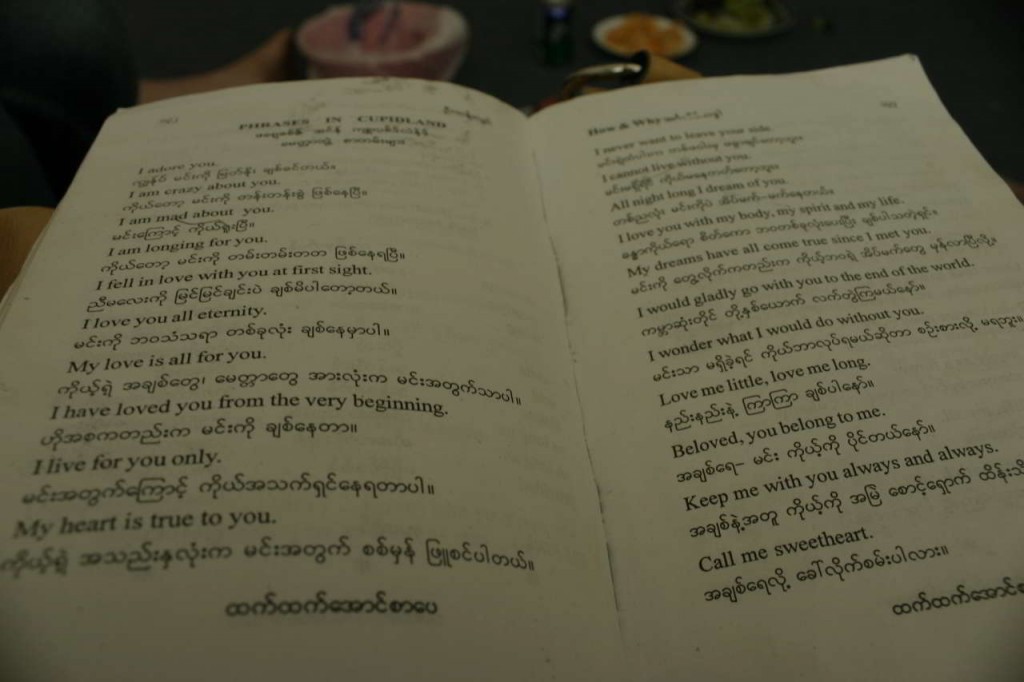 PHRASES IN CUPIDLAND
I adore you.
ကျွန်ုပ် မင်းကို မြတ်နိုး ချစ်ခင်တယ်။
I am crazy about you.
ကိုယ်တော့ မင်းကို တန်းတန်းစွဲ ဖြစ်နေပြီ။
I am mad about you.
မင်းကြောင့် ကိုယ်ရူးပြီ။
I am longing for you.
ကိုယ်တော့ မင်းကို တမ်းတမ်းတတ ဖြစ်နေရပြီ။
I fell in love with you at first sight.
ညီမလေးကို မြင်မြင်ချင်းပဲ ချစ်မိပါတော့တယ်။
I love you all eternity.
မင်းကို ဘဝသံသရာ တစ်ခုလုံး ချစ်နေမှာပါ။
My love is all for you.
ကိုယ့်ရဲ့ အချစ်တွေ၊ မေတ္တာတွေ အားလုံးက မင်းအတွက်သာပါ။
I have loved you from the very beginning.
ဟိုအစကတည်းက မင်းကို ချစ်နေတာ။
I live for you only.
မင်းအတွက်ကြောင့် ကိုယ်အသက်ရှင်နေရတာပါ။
My heart is true to you.
ကိုယ့်ရဲ့ အသည်းနှလုံးက မင်းအတွက် စစ်မှန် ဖြူစင်ပါတယ်။
ထက်ထက်အောင်စာပေ
How & Why
I never want to leave your side.
I cannot live without you.
All night long I dream of you.
တစ်ညလုံး မင်းကိုပဲ အိပ်မက်-မက်နေတယ်။
I love you with my body, my spirit and my life.
My dreams have all come true since I met you.
မင်းကို တွေ့လိုက်ကတည်းက ကိုယ့်ဘဝရဲ့ အိပ်မက်တွေ မှန်လာပြီလို့။
I would gladly go with you to the end of the world.
ကမ္ဘာဆုံးတိုင် တို့နှစ်ယောက် လက်တွဲကြမယ်နော်။
I wonder what I would do without you.
မင်းသာ မရှိခဲ့ရင် ကိုယ်ဘာလုပ်ရမယ်ဆိုတာ စဉ်းစားလို့ မရဘူး။
Love me little, love me long.
နည်းနည်းနဲ့ ကြာကြာ ချစ်ပါနော်။
Beloved, you belong to me.
အချစ်ရေ- မင်း ကိုယ့်ကို ပိုင်တယ်နော်။
Keep me with you always and always.
အချစ်နဲ့အတူ ကိုယ့်ကို အမြဲ စောင့်ရှောက်
Call me sweetheart.
အချစ်ရေလို့ ခေါ်လိုက်စမ်းပါလား။